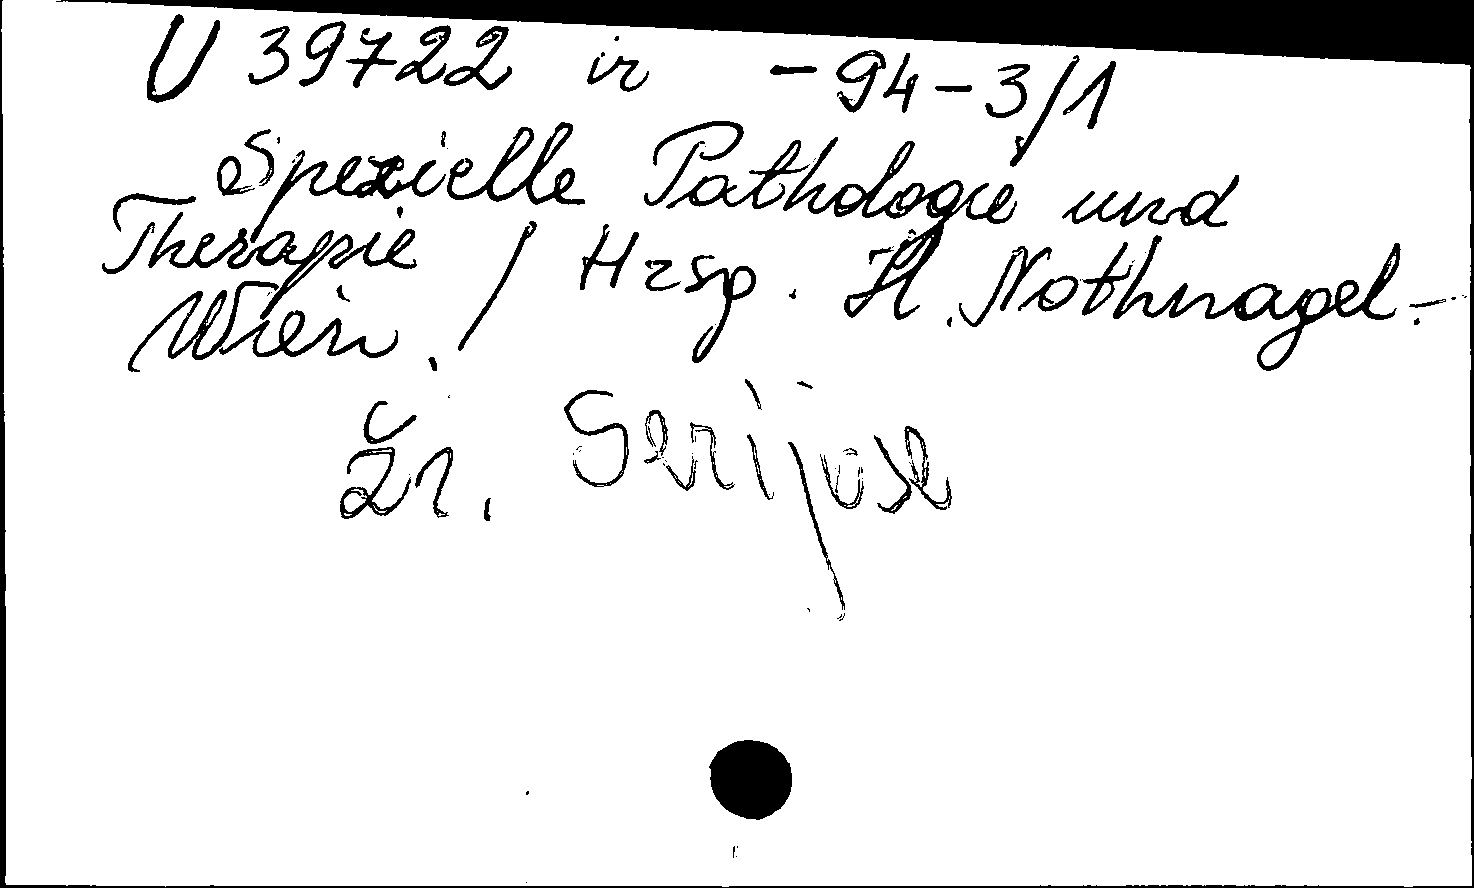 U 39722 ir -94-3/1
Spezielle Pathologie und
Therapie / Hrsg. H. Nothnagel.-
Wien.
Žr. Serijose